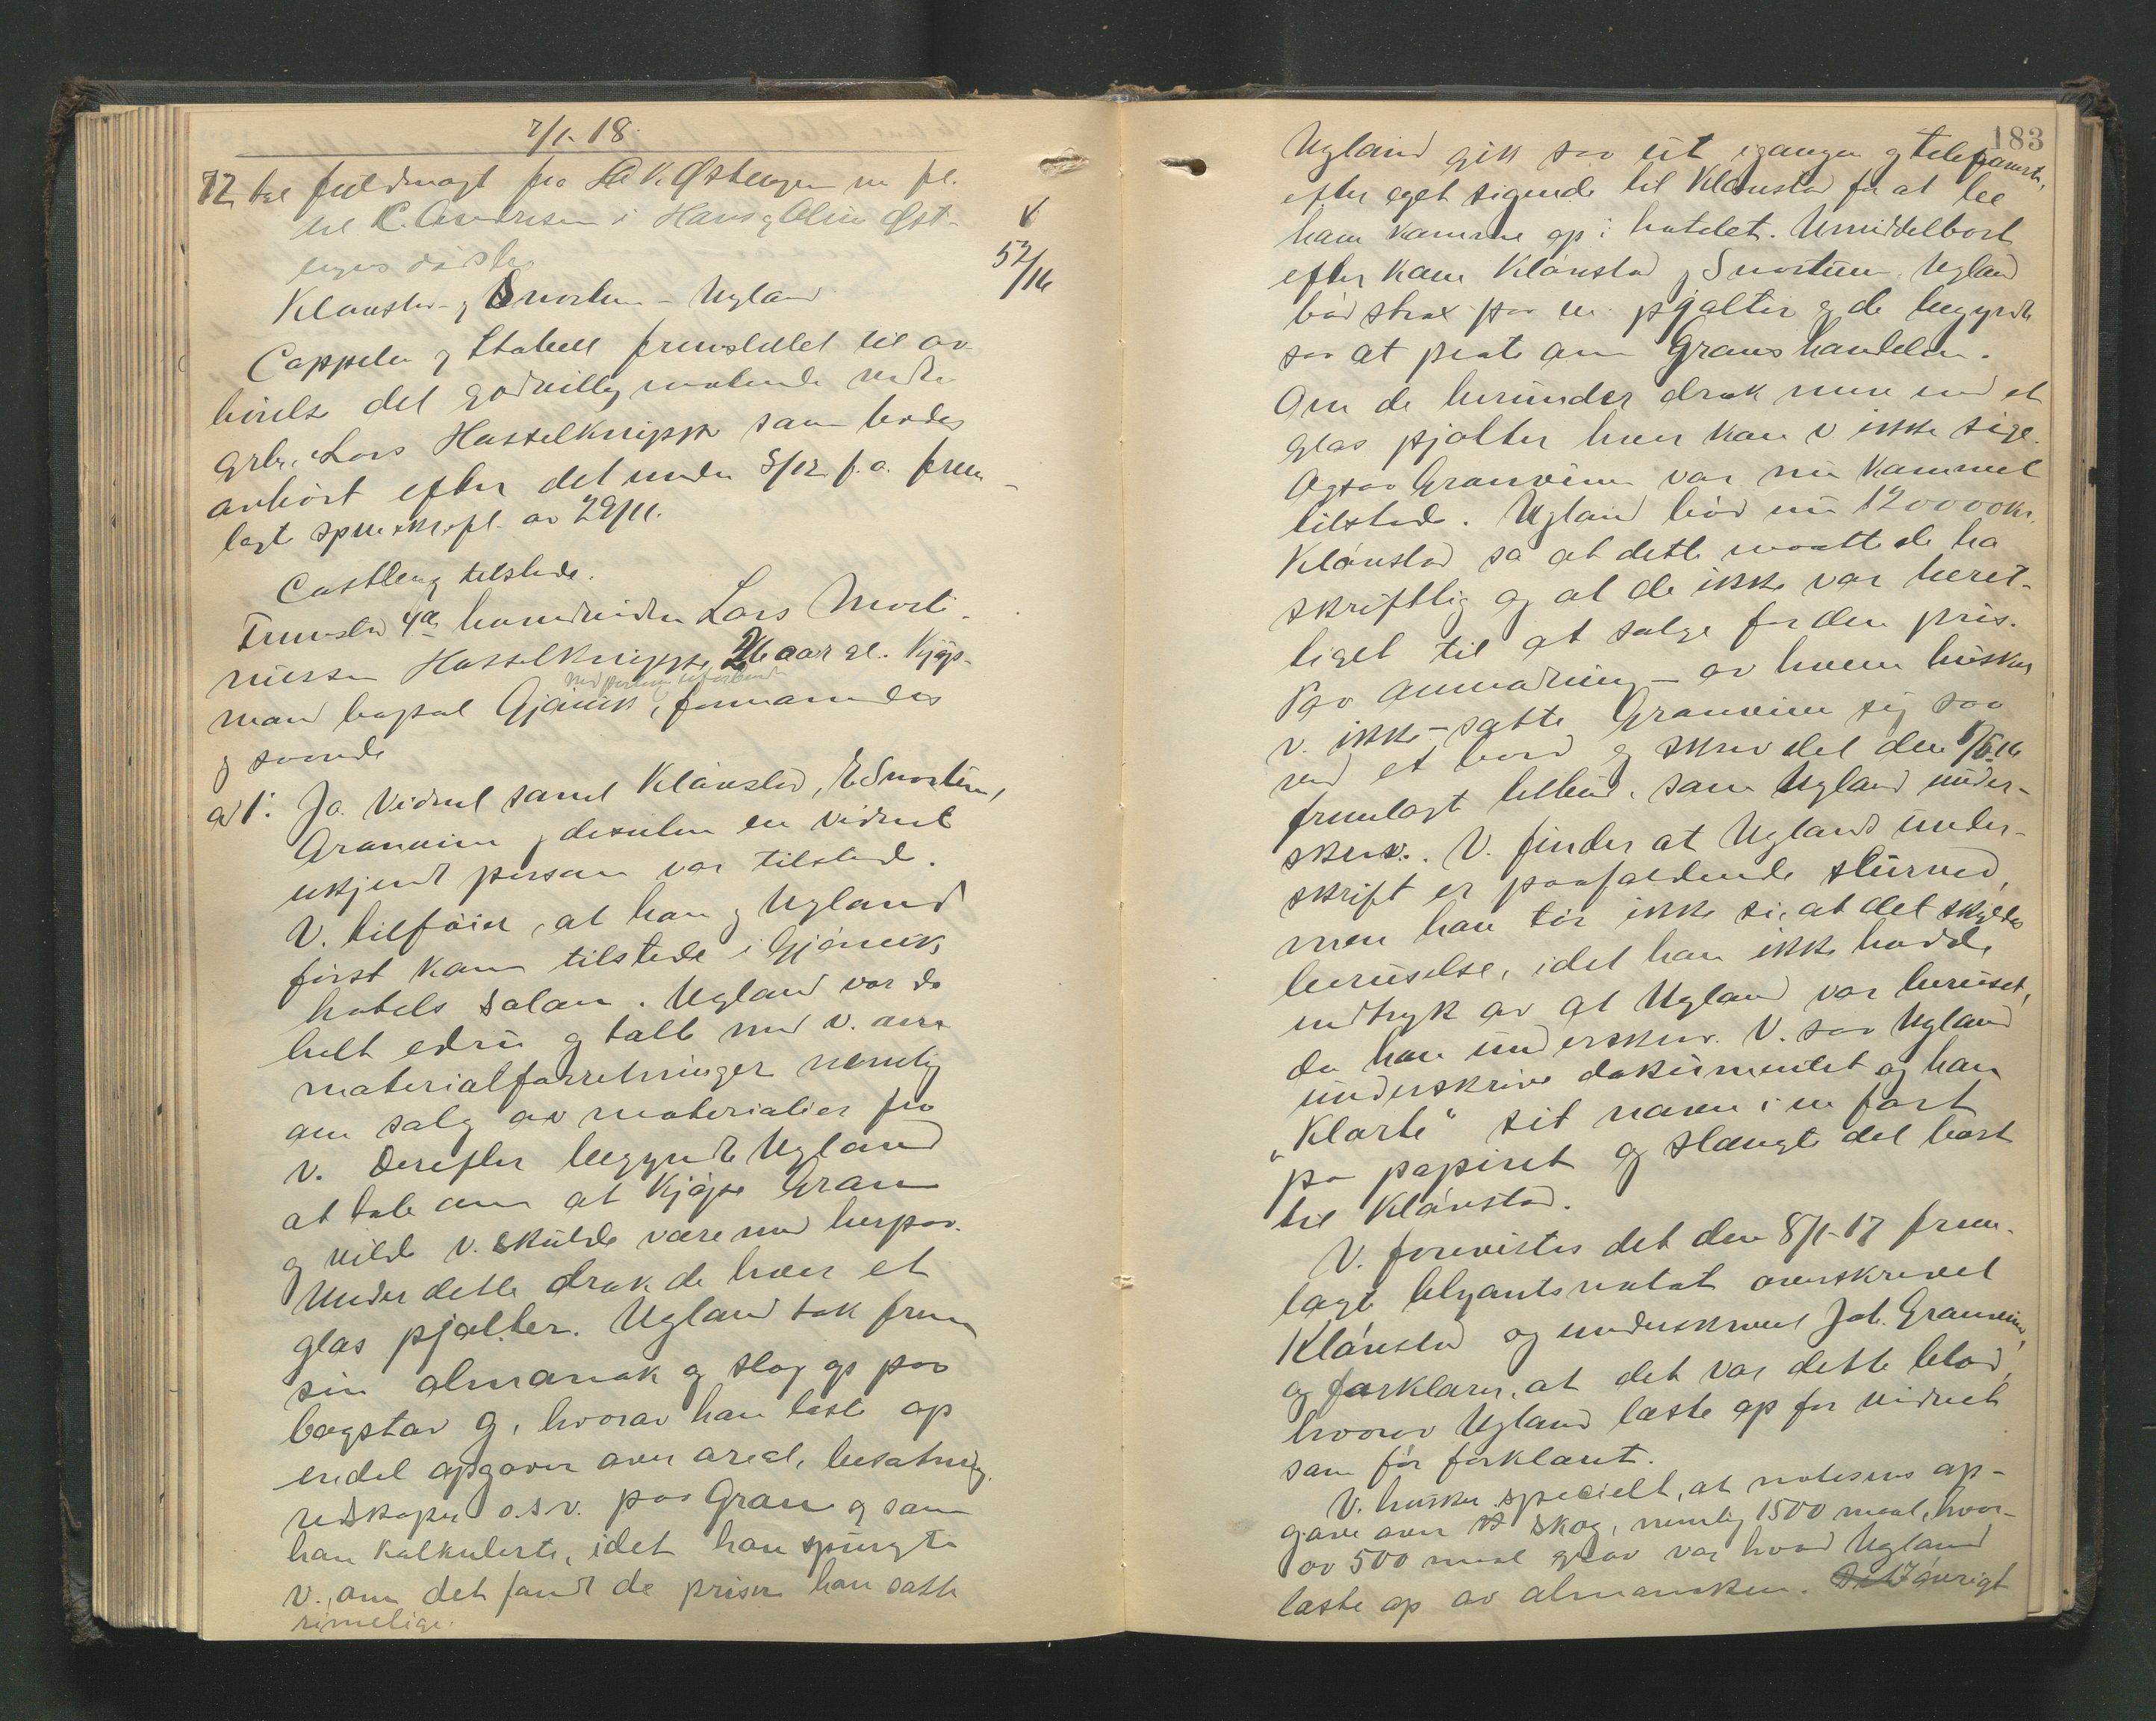 7/1-18.
72 tal fuldmagt fra A. K. Østengen m fl.
til C. Andresen i Hans og Oline Øst-
engens dødsbo
Klønstad og Snortum - Ugland
52/16
Cappelen og Stabell fremstillet til av-
hörelse det godvillig møtende vidne
grbr. Lars Hasselknippe som bedes
avhört efter det under 5/12 f.a. frem-
lagt spørsm.skr.pl. av 29/11.
Castberg tilstede.
Fremstod 4de hovedvidne Lars Morti-
nussen Hasselknippe, 26 aar gl. Kjöp-
mand bopæl Gjøvik, formanedes
og svorede
ad 1: Ja. Vidnet samt Klønstad, E Snortum,
Granveim og desuten en vidnet
ukjendt person var tilstede.
V. tilföier, at han og Ugland
först kom tilstede i Gjöviks
hotels salon. Ugland var da
helt edru og talte med v. om
materialforretninger nemlig
om salg av materialier fra
V. Derefter begyndte Ugland
at tale om at kjöpe Gran
og vilde v. skulde være med herpaa.
Under dette drak de hver et
glas pjolter. Ugland tok frem
sin almanak og slog op paa
bogstav G, hvorav han læste op
endel opgaver over areal, besætning,
redskaper o.s.v. paa Gran og som
han kalkulerte, idet han spurgte
v. om det fandt de priser han satte
rimelige.
183
Ugland gik saa ut i gangen og telefonerte,
efter eget sigende til Klønstad for at be
ham komme op i hotelet. Umiddelbart
efter kom Klønstad og Snortum. Ugland
böd strax paa en pjolter og de begyndte
saa at prate om Granshandelen.
Om de herunder drak mere end et
glas pjolter hver kan v ikke sige.
Ogsaa Granveim var nu kommet
tilstede. Ugland böd nu 120000kr.
Klønstad sa at dette maatte de ha
skriftlig og at de ikke var beret-
tiget til at sælge for den pris.
Paa anmodning - av hvem husker
v. ikke - satte Granveim sig saa
ved et bord og skrev det den 8/5 16
fremlagt tilbud, som Ugland under-
skrev. V. finder at Uglands under-
skrift er paafaldende slurved,
men han tör ikke si, at det skyldes
beruselse, idet han ikke hadde
indtryk av at Ugland var beruset,
da han underskrev. V. saa Ugland
underskrive dokumentet og han
"Klorte" sit navn i en fart
paa papiret og slængte det bort
til Klønstad.
V. forevistes det den 8/1-17 frem-
lagt blyantsnotat overskrevet
Klønstad og underskrevet Joh. Granveim,
og forklarer, at det var dette blad,
hvorav Ugland læste op for vidnet
som för forklaret.
V. husker specielt, at notisens op-
gave over skog, nemlig 1500 maal, hvor-
av 500 maal gran var hvad Ugland
læste op av almanakken. Iövrigt